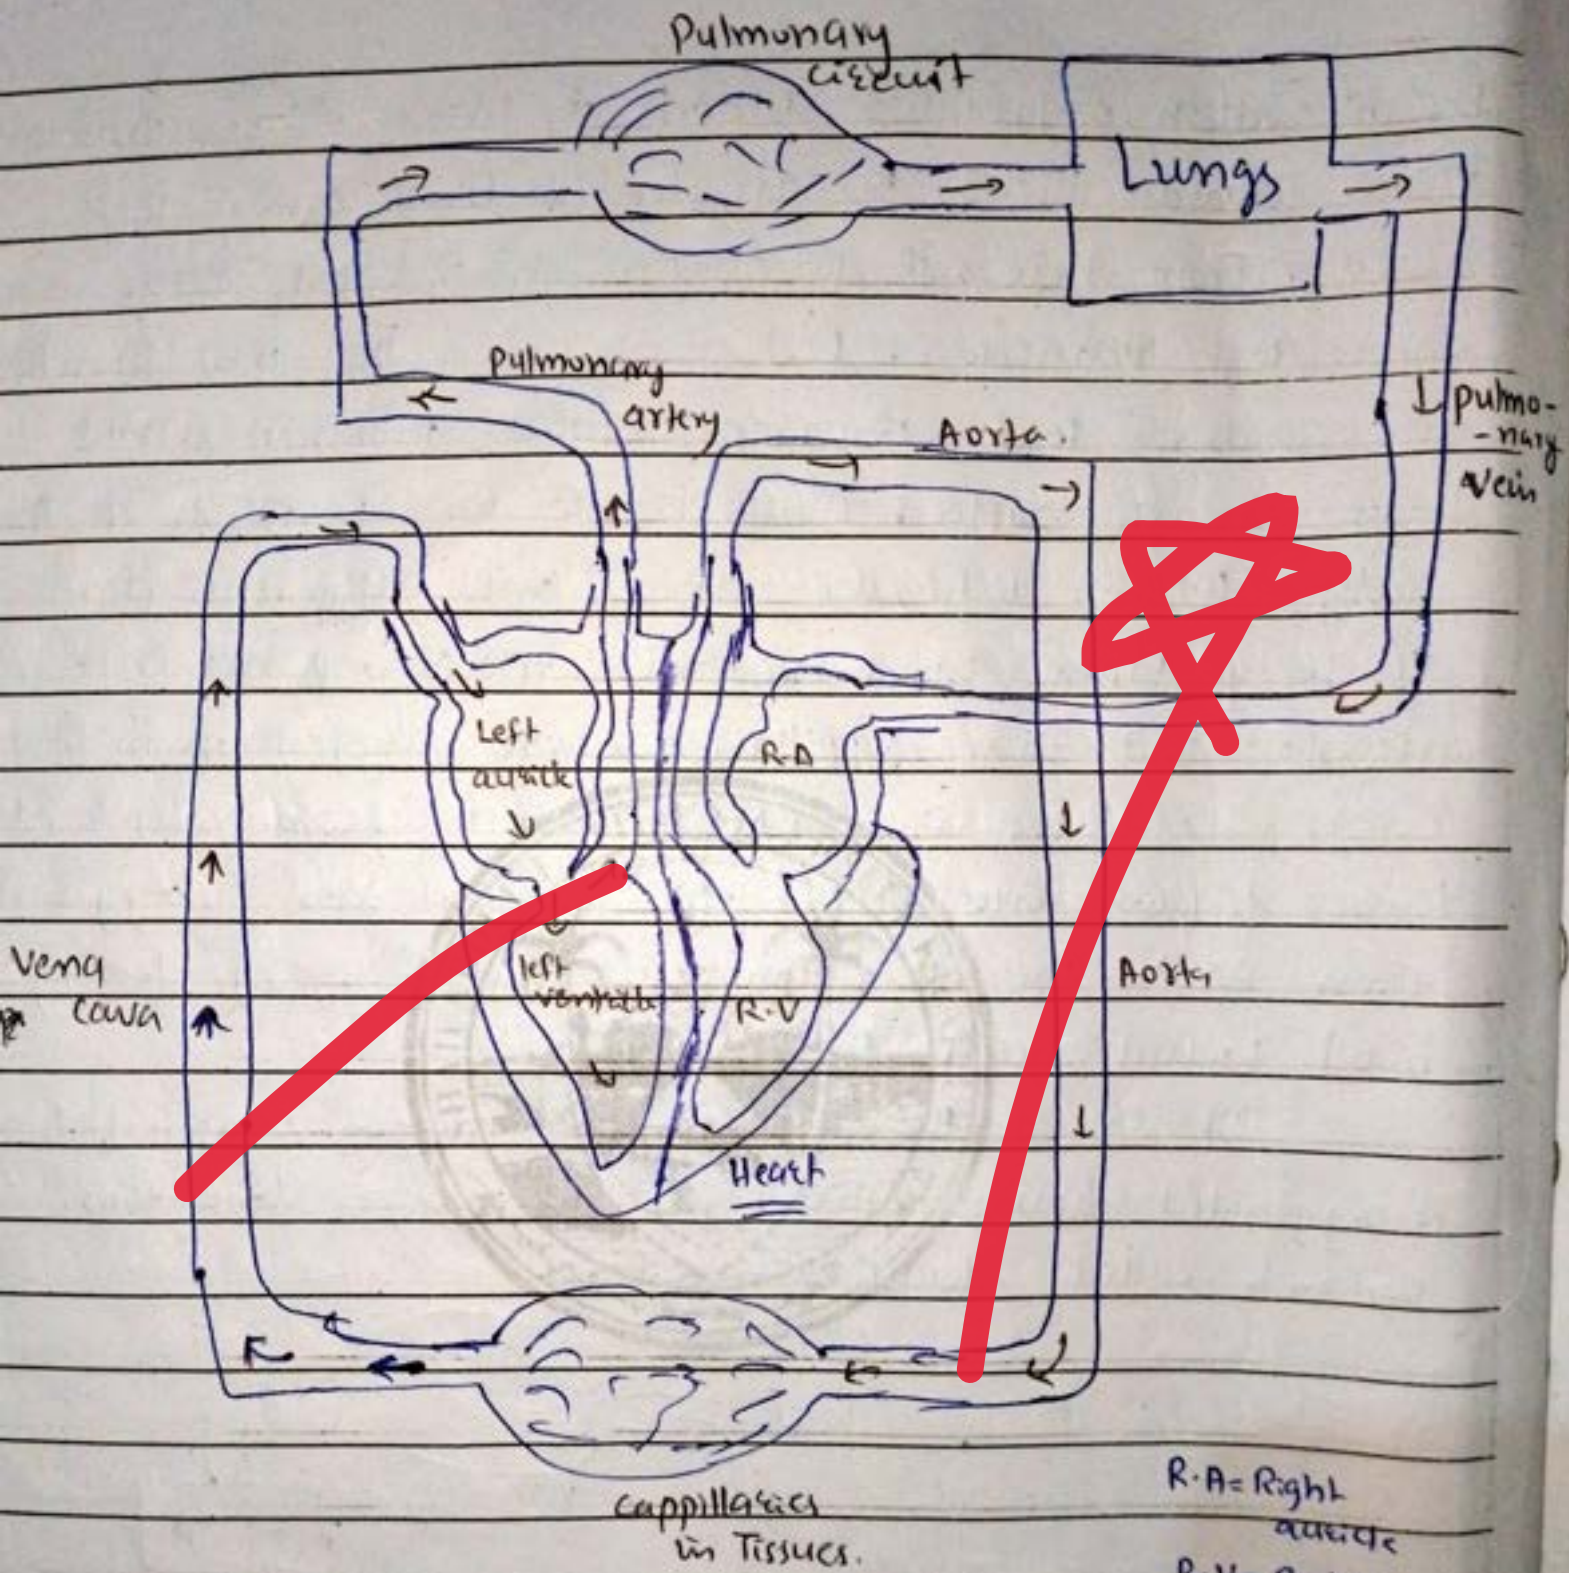 Pulmonary
circuit
Lungs
Pulmonary
artery
Aorta.
pulmo-
-nary
vein
Left
auricle
R.A
left
ventricle
R.V
Vena
cava
Aorta
Heart
Cappillaries
in Tissues.
R.A= Right
auricle